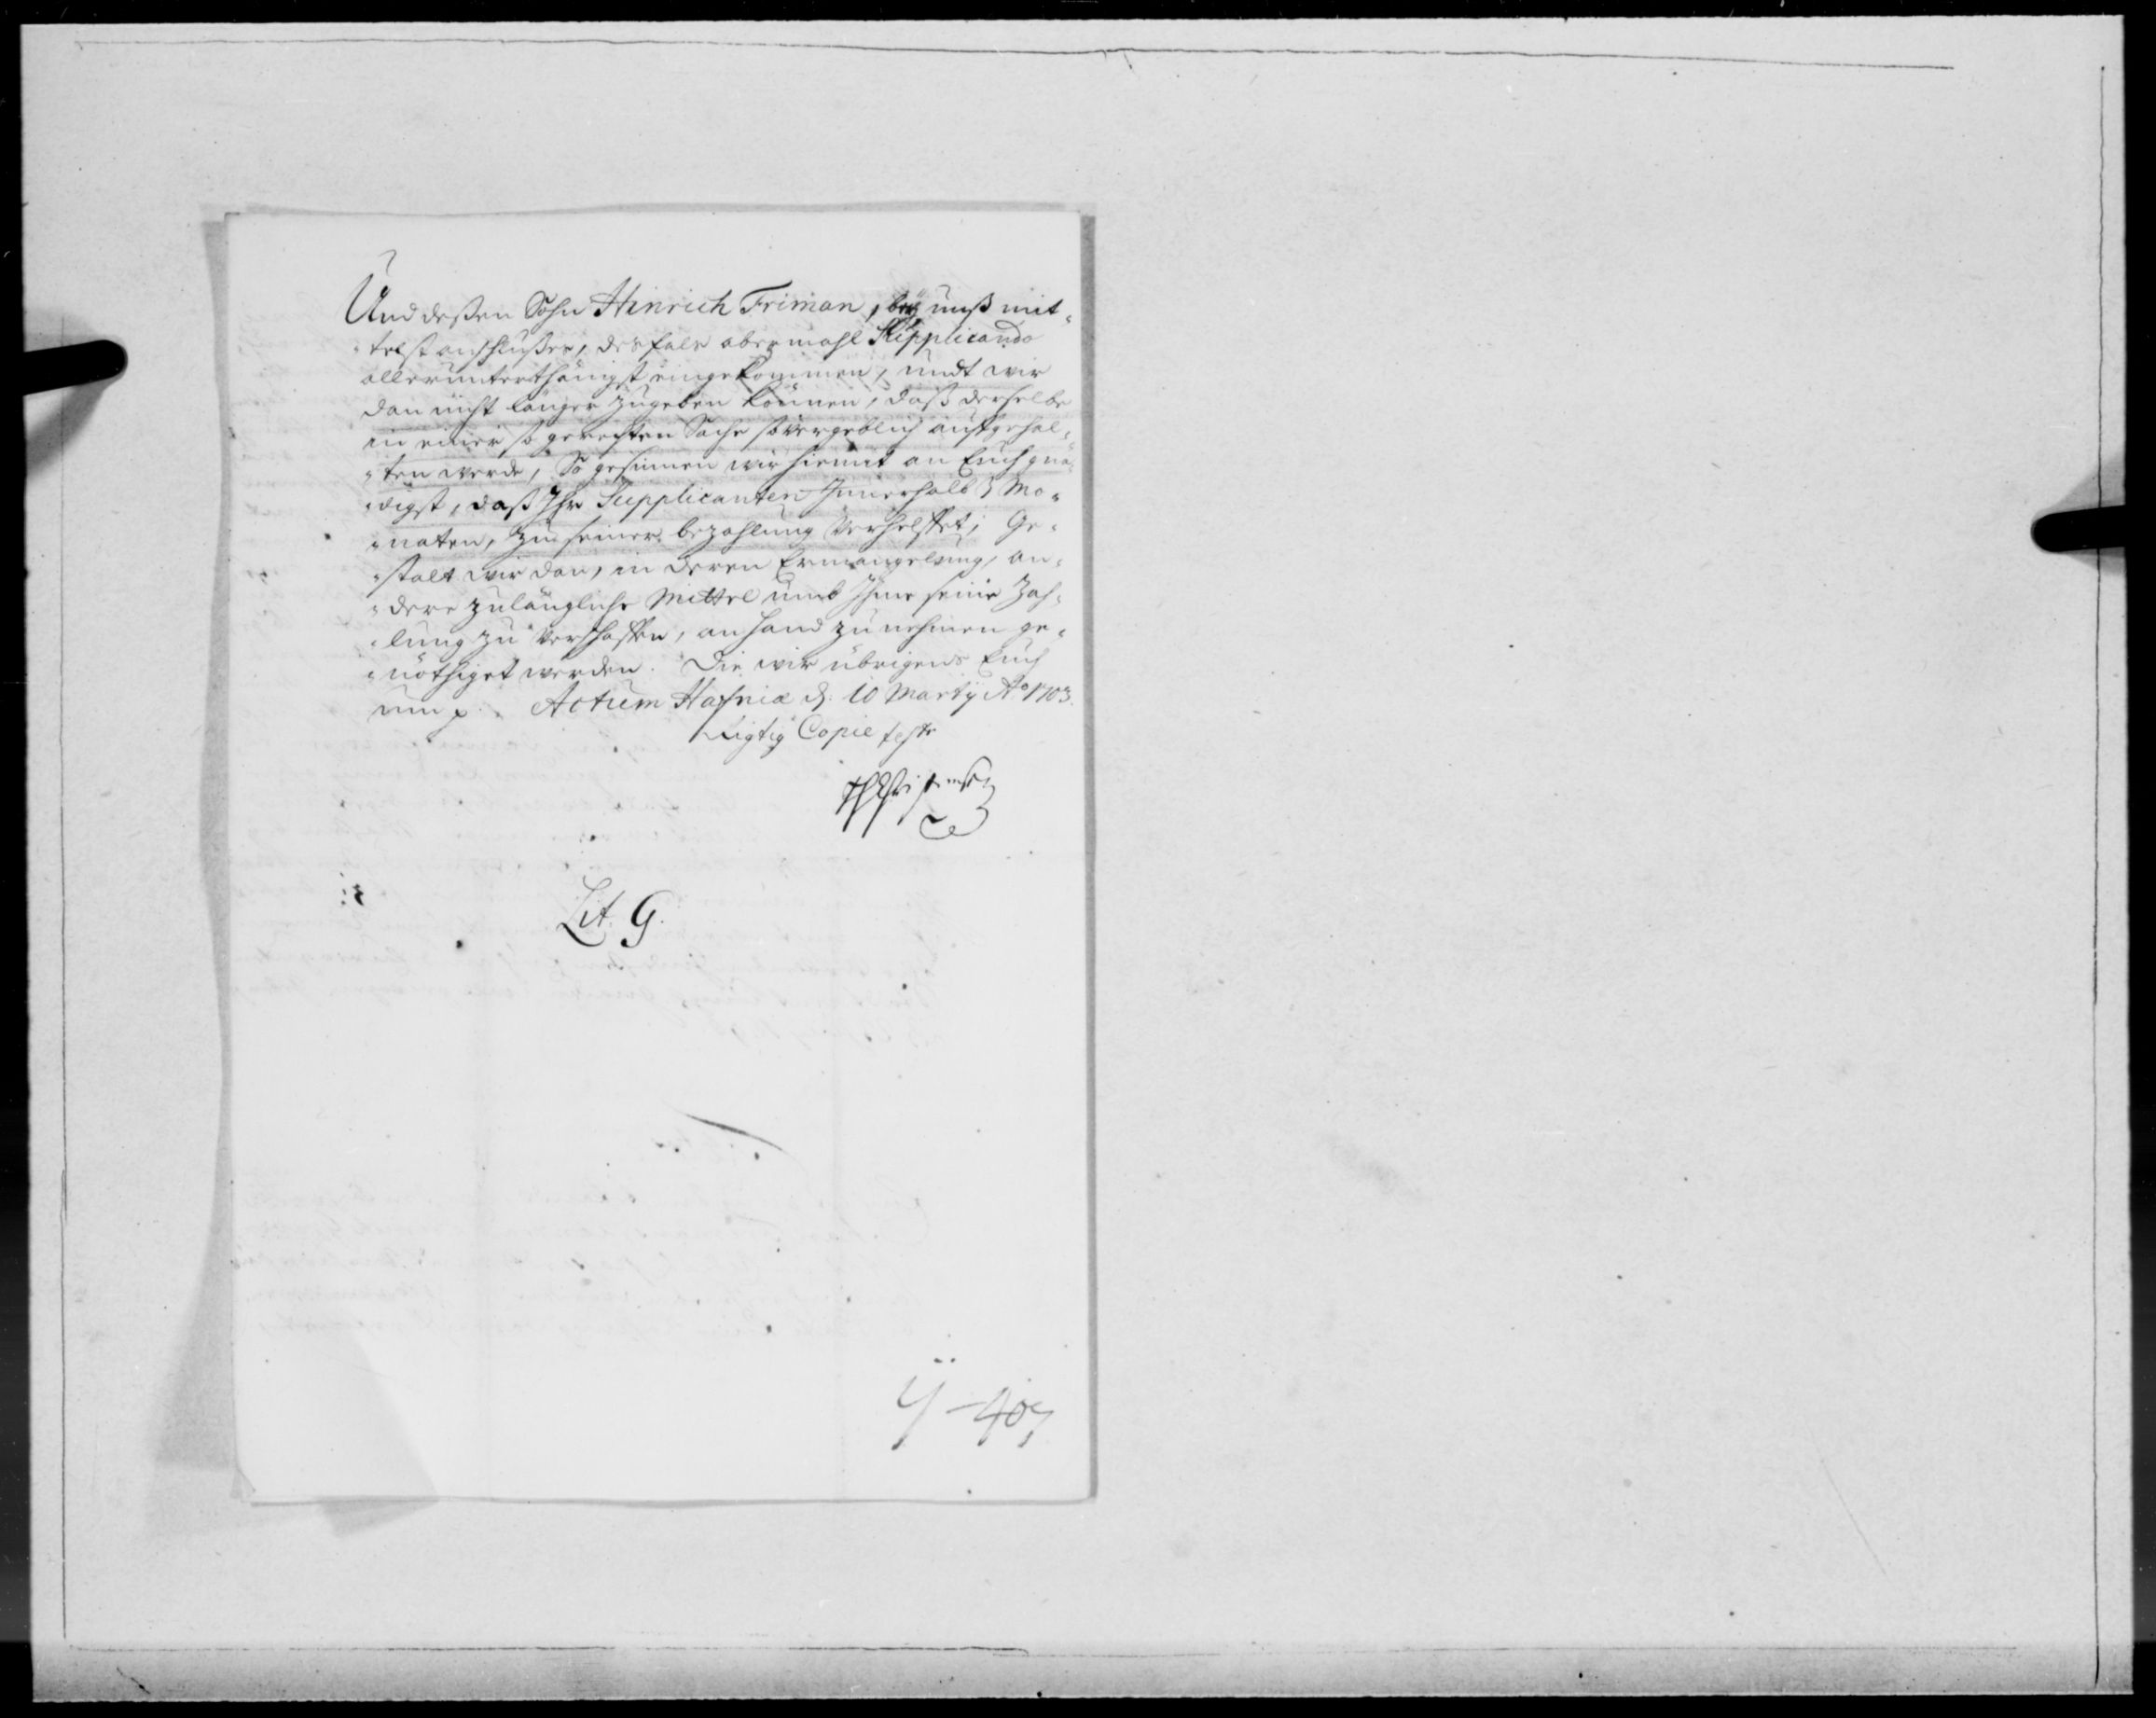 Und deßen Sohn Hinrich Friman, beÿ unß mit-
telst anschlußes, desfals abermahl Supplicando
allerunterthänigst eingekommen, undt wir
dan nicht länger zugeben können, daß derselbe
in einer so gerechten Sache so vergeblich aufgehal-
ten werde, So gesinnen wir hiemit an Euch gnä-
digst, daß Ihr Supplicanten Innerhalb 3 Mo-
naten, zu seiner bezahlung Verhelffet; Ge-
stalt wir dan, in deren Ermangelung, an-
dere zulängliche Mittel umb Ihme seine Zah-
lung zu Verschaffen, an hand zu nehmen ge-
nöthiget werden. Die wir übrigens Euch
Actum Hafniæ d: 10 Martÿ Ao 1703.
Rigtig Copie teste
Lit. G.
4-407